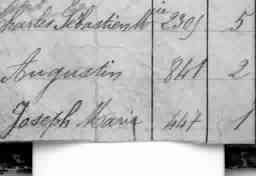 Charles Sébastien M ie 2305 5
Augustin 841 2
Joseph Marie 447 1